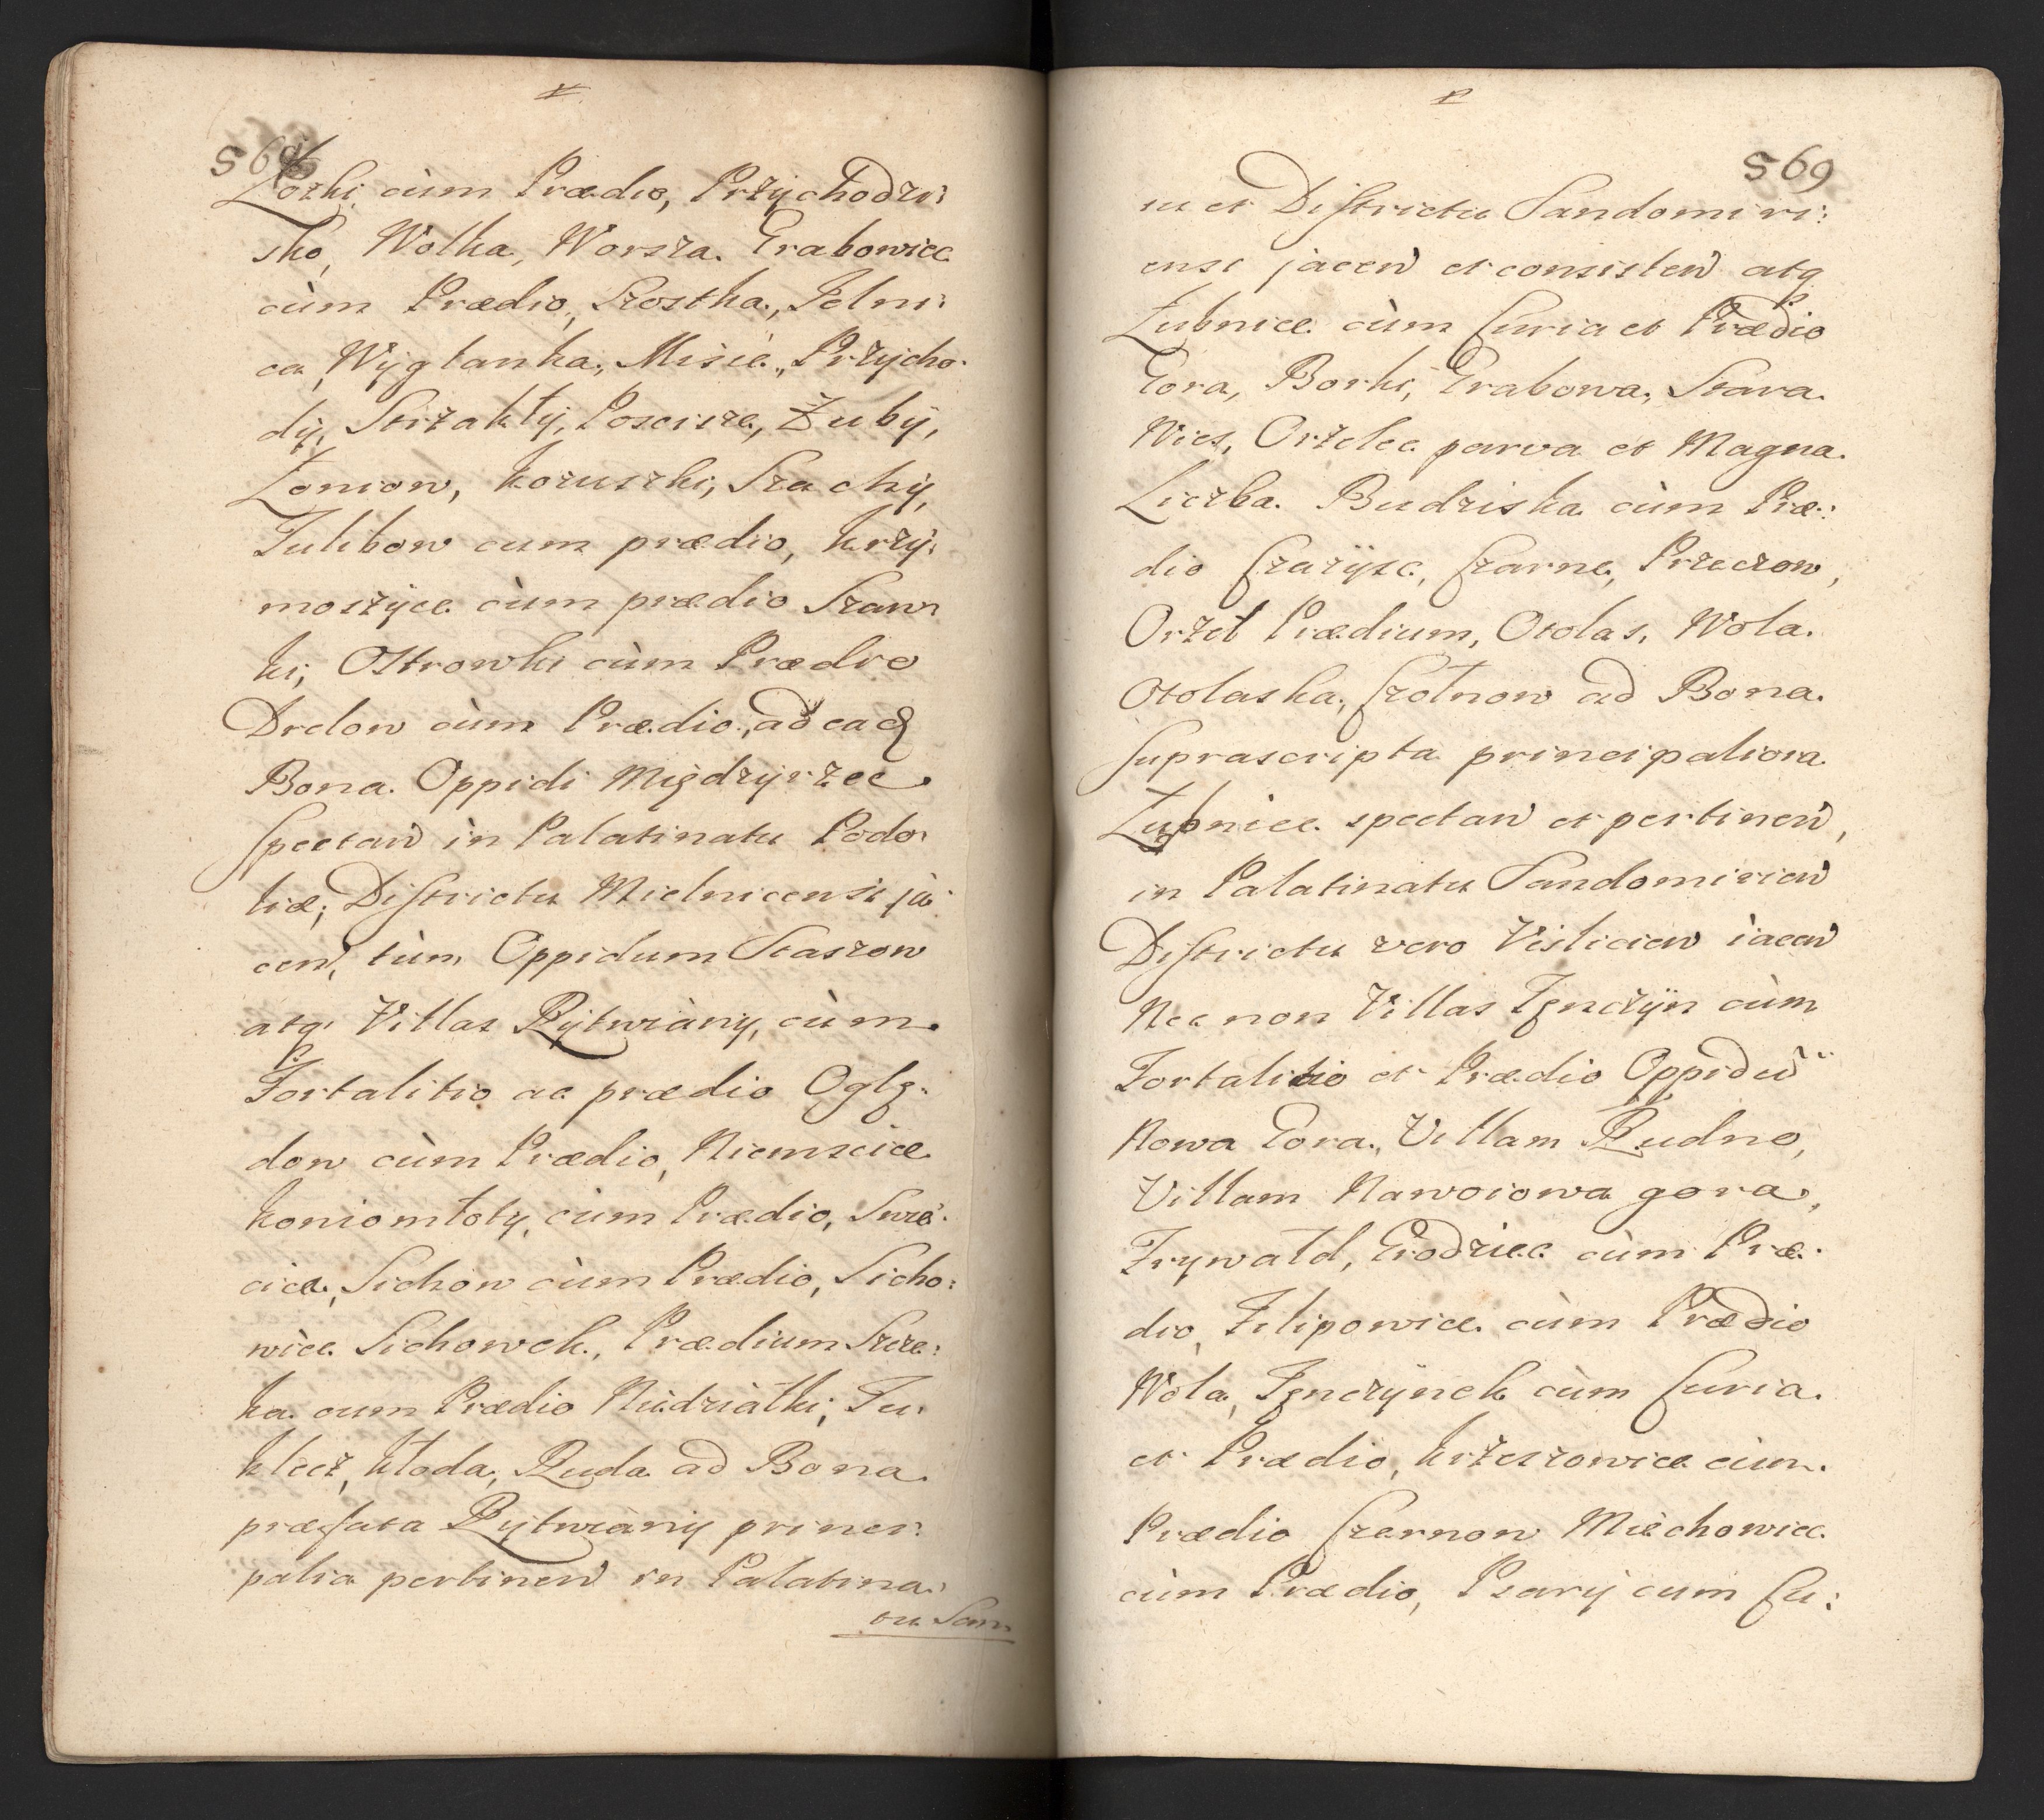 568
Łozki cùm Prædio, Przÿchodzi:
sko, Wolka, Worsza. Grabowiec
cùm Prædio, Szostka, Jelni:
ca, Wÿgłanka, Misie, Przÿcho:
dÿ, Strzakłÿ, Poscisze, Żubÿ,
Łoniow, Kożuszki, Szachÿ,
Tulibow cum prædio, Krzÿ:
moszÿce cùm prædio Szaw:
ki, Ostrowki cùm Prædio
Drelow cùm Prædio, ad eaq
Bona Oppidi Międzÿrzec
spectan in Palatinatu Podo:
liæ, Districtu Mielnicensi ja:
cen, tùm Oppidum Staszow
atq Villas Rÿtwiany, cùm
Fortalitio ac prædio Oglę:
dow cùm Prædio, Niemscice
Koniomłoty, cùm Prædio, Swie:
cice, Sichow cùm Prædio, Sicho:
wice Sichowek, Prædium Strze:
ka cum Prædio Niedziałki, Tu:
klecz, Kłoda, Ruda ad Bona
præfata Rÿtwiany princi:
palia pertinen in Palatina:
tu San
569
tu et Districtu Sandomiri:
ensi jacen et consisten atq
Łubnice cùm Curia et Prædio
Gora, Borki, Grabowa, Stara
Wies, Orzelec parva et Magna
Liczba. Budziska cùm Præ:
dio Czaÿzc, Czarne, Przeczow,
Orzel Prædium, Otolas, Wola
Otolaska, Szołnow ad Bona
suprascripta principaliora
Łubnice spectan et pertinen,
in Palatinatu Sandomirien
Districtu vero Vislicien iacen
Nec non Villas Tęnczÿn cùm
Fortalitio et Prædio Oppidu
Nowa Gora, Villam Rudno,
Villam Nawoiowa gora,
Frywałd, Grodziec cùm Præ:
dio, Filipowice cùm Prædio
Wola, Tęnczÿnek cùm Curia
et Prædio, Krzeszowice cùm
Prædio Czernow Miechowice
cùm Prædio, Psarÿ cum Cu: